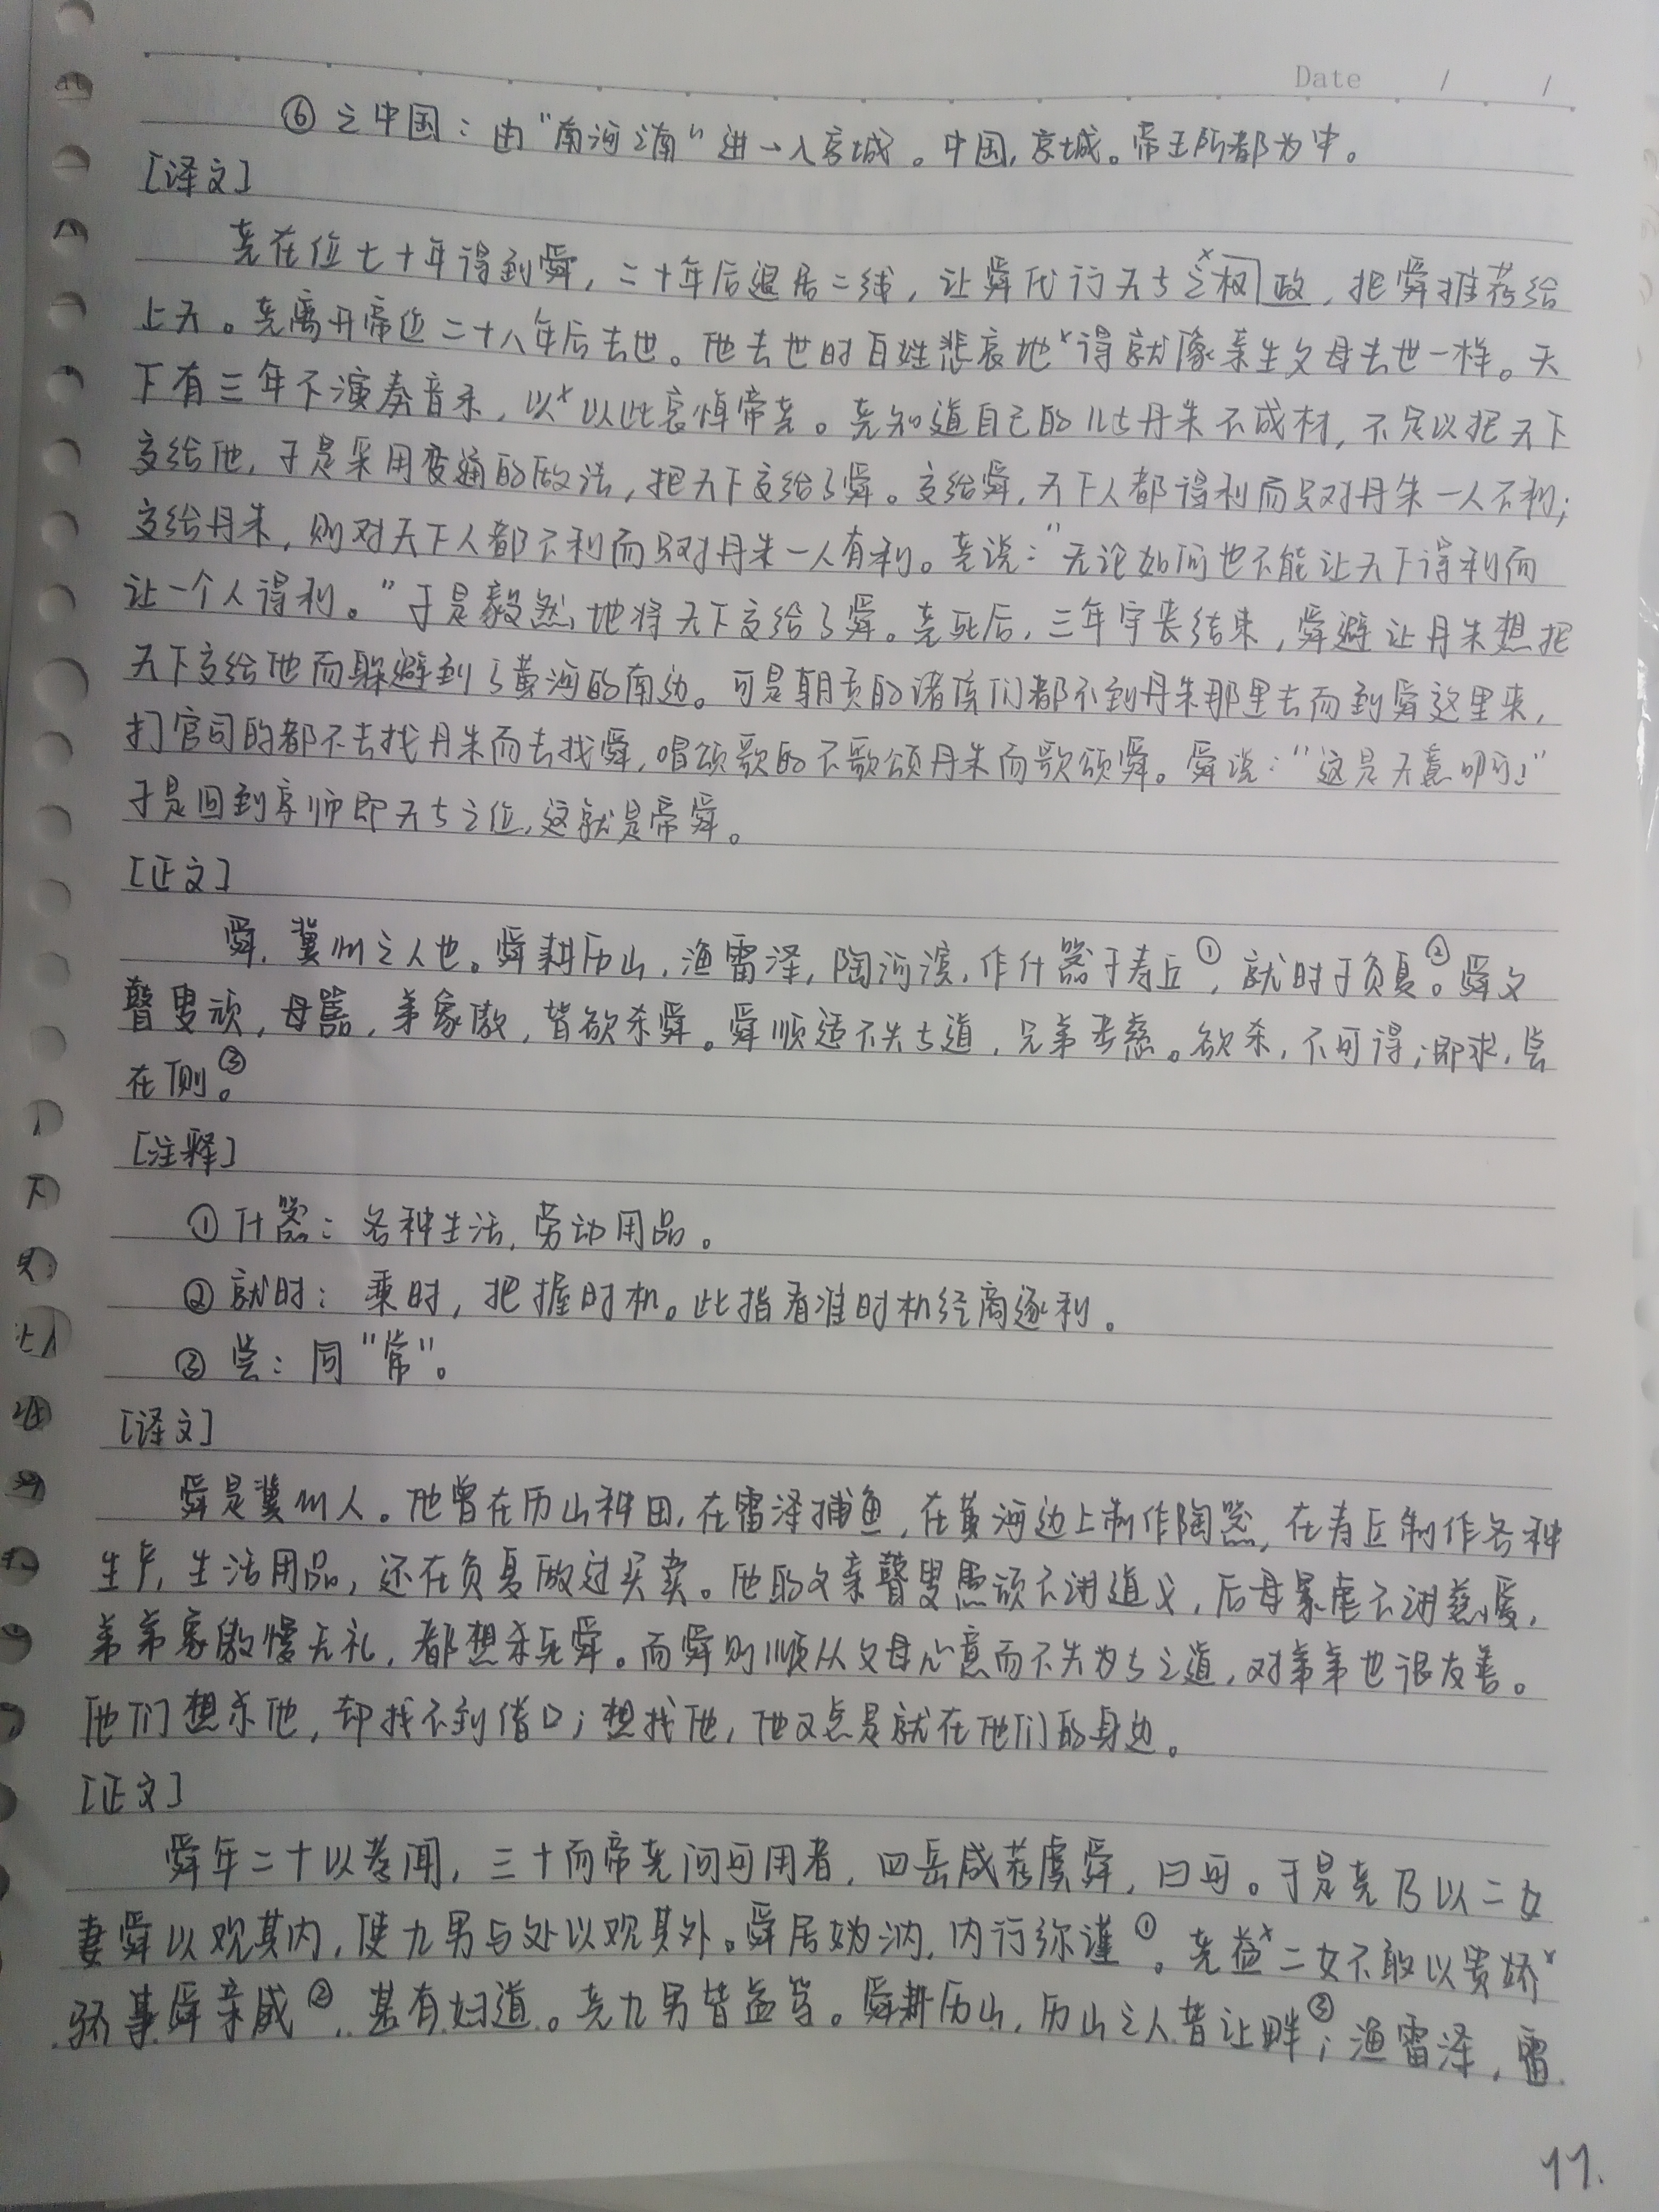 Date / /
⑥之中国：由“南河之南”进入京城。中国，京城。帝王所都为中。
[译文]
尧在位七十年得到舜，二十年后退居二线，让舜代行天子之权政，把舜推荐给
上天。尧离开帝位二十八年后去世。他去世时百姓悲哀地得就像亲生父母去世一样。天
下有三年不演奏音乐，以以此哀悼帝尧。尧知道自己的儿子丹朱不成材，不足以把天下
交给他，于是采用变通的做法，把天下交给了舜。交给舜，天下人都得利而只对丹朱一人不利；
交给丹朱，则对天下人都不利而只对丹朱一人有利。尧说：“无论如何也不能让天下得利而
让一个人得利。”于是毅然地将天下交给了舜。尧死后，三年守丧结束，舜避让丹朱想把
天下交给他而躲避到了黄河的南边。可是朝贡的诸侯们都不到丹朱那里去而到舜这里来，
打官司的都不去找丹朱而去找舜，唱颂歌的不歌颂丹朱而歌颂舜。舜说：“这是天意啊！”
于是回到京师即天子之位，这就是帝舜。
[正文]
舜，冀州之人也。舜耕历山，渔雷泽，陶河滨，作什器于寿丘①，就时于负夏②。舜父
瞽叟顽，母嚚，弟象傲，皆欲杀舜。舜顺适不失子道，兄弟孝慈。欲杀，不可得；即求，尝
在侧。③
[注释]
①什器：各种生活，劳动用品。
②就时：乘时，把握时机。此指看准时机经商逐利。
③尝：同“常”。
[译文]
舜是冀州人。他曾在历山种田，在雷泽捕鱼，在黄河边上制作陶器，在寿丘制作各种
生产，生活用品，还在负夏做过买卖。他的父亲瞽叟愚顽不讲道义，后母暴虐不讲慈爱，
弟弟象傲慢无礼，都想杀死舜。而舜则顺从父母心意而不失为子之道，对弟弟也很友善。
他们想杀他，却找不到借口；想找他，他又总是就在他们的身边。
[正文]
舜年二十以孝闻，三十而帝尧问可用者，四岳咸荐虞舜，曰可。于是尧乃以二女
妻舜以观其内，使九男与处以观其外。舜居妫汭，内行弥谨①。尧益二女不敢以贵娇
骄事舜亲戚②，甚有妇道。尧九男皆益笃。舜耕历山，历山之人皆让畔③；渔雷泽，雷
11.